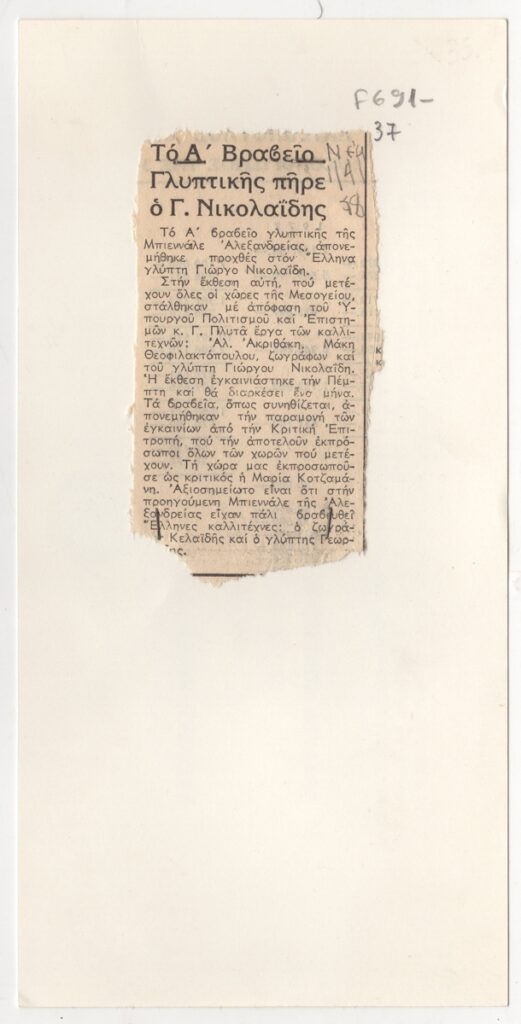 F691-
37
Τό Α΄ Βραβεῖο
Γλυπτικῆς πῆρε
ὁ Γ. Νικολαΐδης
Τό Α΄ βραβεῖο γλυπτικῆς τῆς
Μπιεννάλε Ἀλεξανδρείας, ἀπονε-
μήθηκε προχθές στόν Ἕλληνα
γλύπτη Γιῶργο Νικολαΐδη.
Στήν ἔκθεση αὐτή, πού μετέ-
χουν ὅλες οἱ χῶρες τῆς Μεσογείου,
στάλθηκαν μέ ἀπόφαση τοῦ Ὑ-
πουργοῦ Πολιτισμοῦ καί Ἐπιστη-
μῶν κ. Γ. Πλυτᾶ ἔργα τῶν καλλι-
τεχνῶν: Ἀλ. Ἀκριθάκη, Μάκη
Θεοφιλακτόπουλου, ζωγράφων καί
τοῦ γλύπτη Γιώργου Νικολαΐδη.
Ἡ ἔκθεση ἐγκαινιάστηκε τήν Πέμ-
πτη καί θά διαρκέσει ἕνα μήνα.
Τά βραβεῖα, ὅπως συνηθίζεται, ἀ-
πονεμήθηκαν τήν παραμονή τῶν
ἐγκαινίων ἀπό τήν Κριτική Ἐπι-
τροπή, πού τήν ἀποτελοῦν ἐκπρό-
σωποι ὅλων τῶν χωρῶν πού μετέ-
χουν. Τή χώρα μας ἐκπροσωποῦ-
σε ὡς κριτικός ἡ Μαρία Κοτζαμά-
νη. Ἀξιοσημείωτο εἶναι ὅτι στήν
προηγούμενη Μπιεννάλε τῆς Ἀλε-
ξανδρείας εἶχαν πάλι βραβευθεῖ
Ἕλληνες καλλιτέχνες: ὁ ζωγρά-
Κελαϊδῆς καί ὁ γλύπτης Γεωρ-